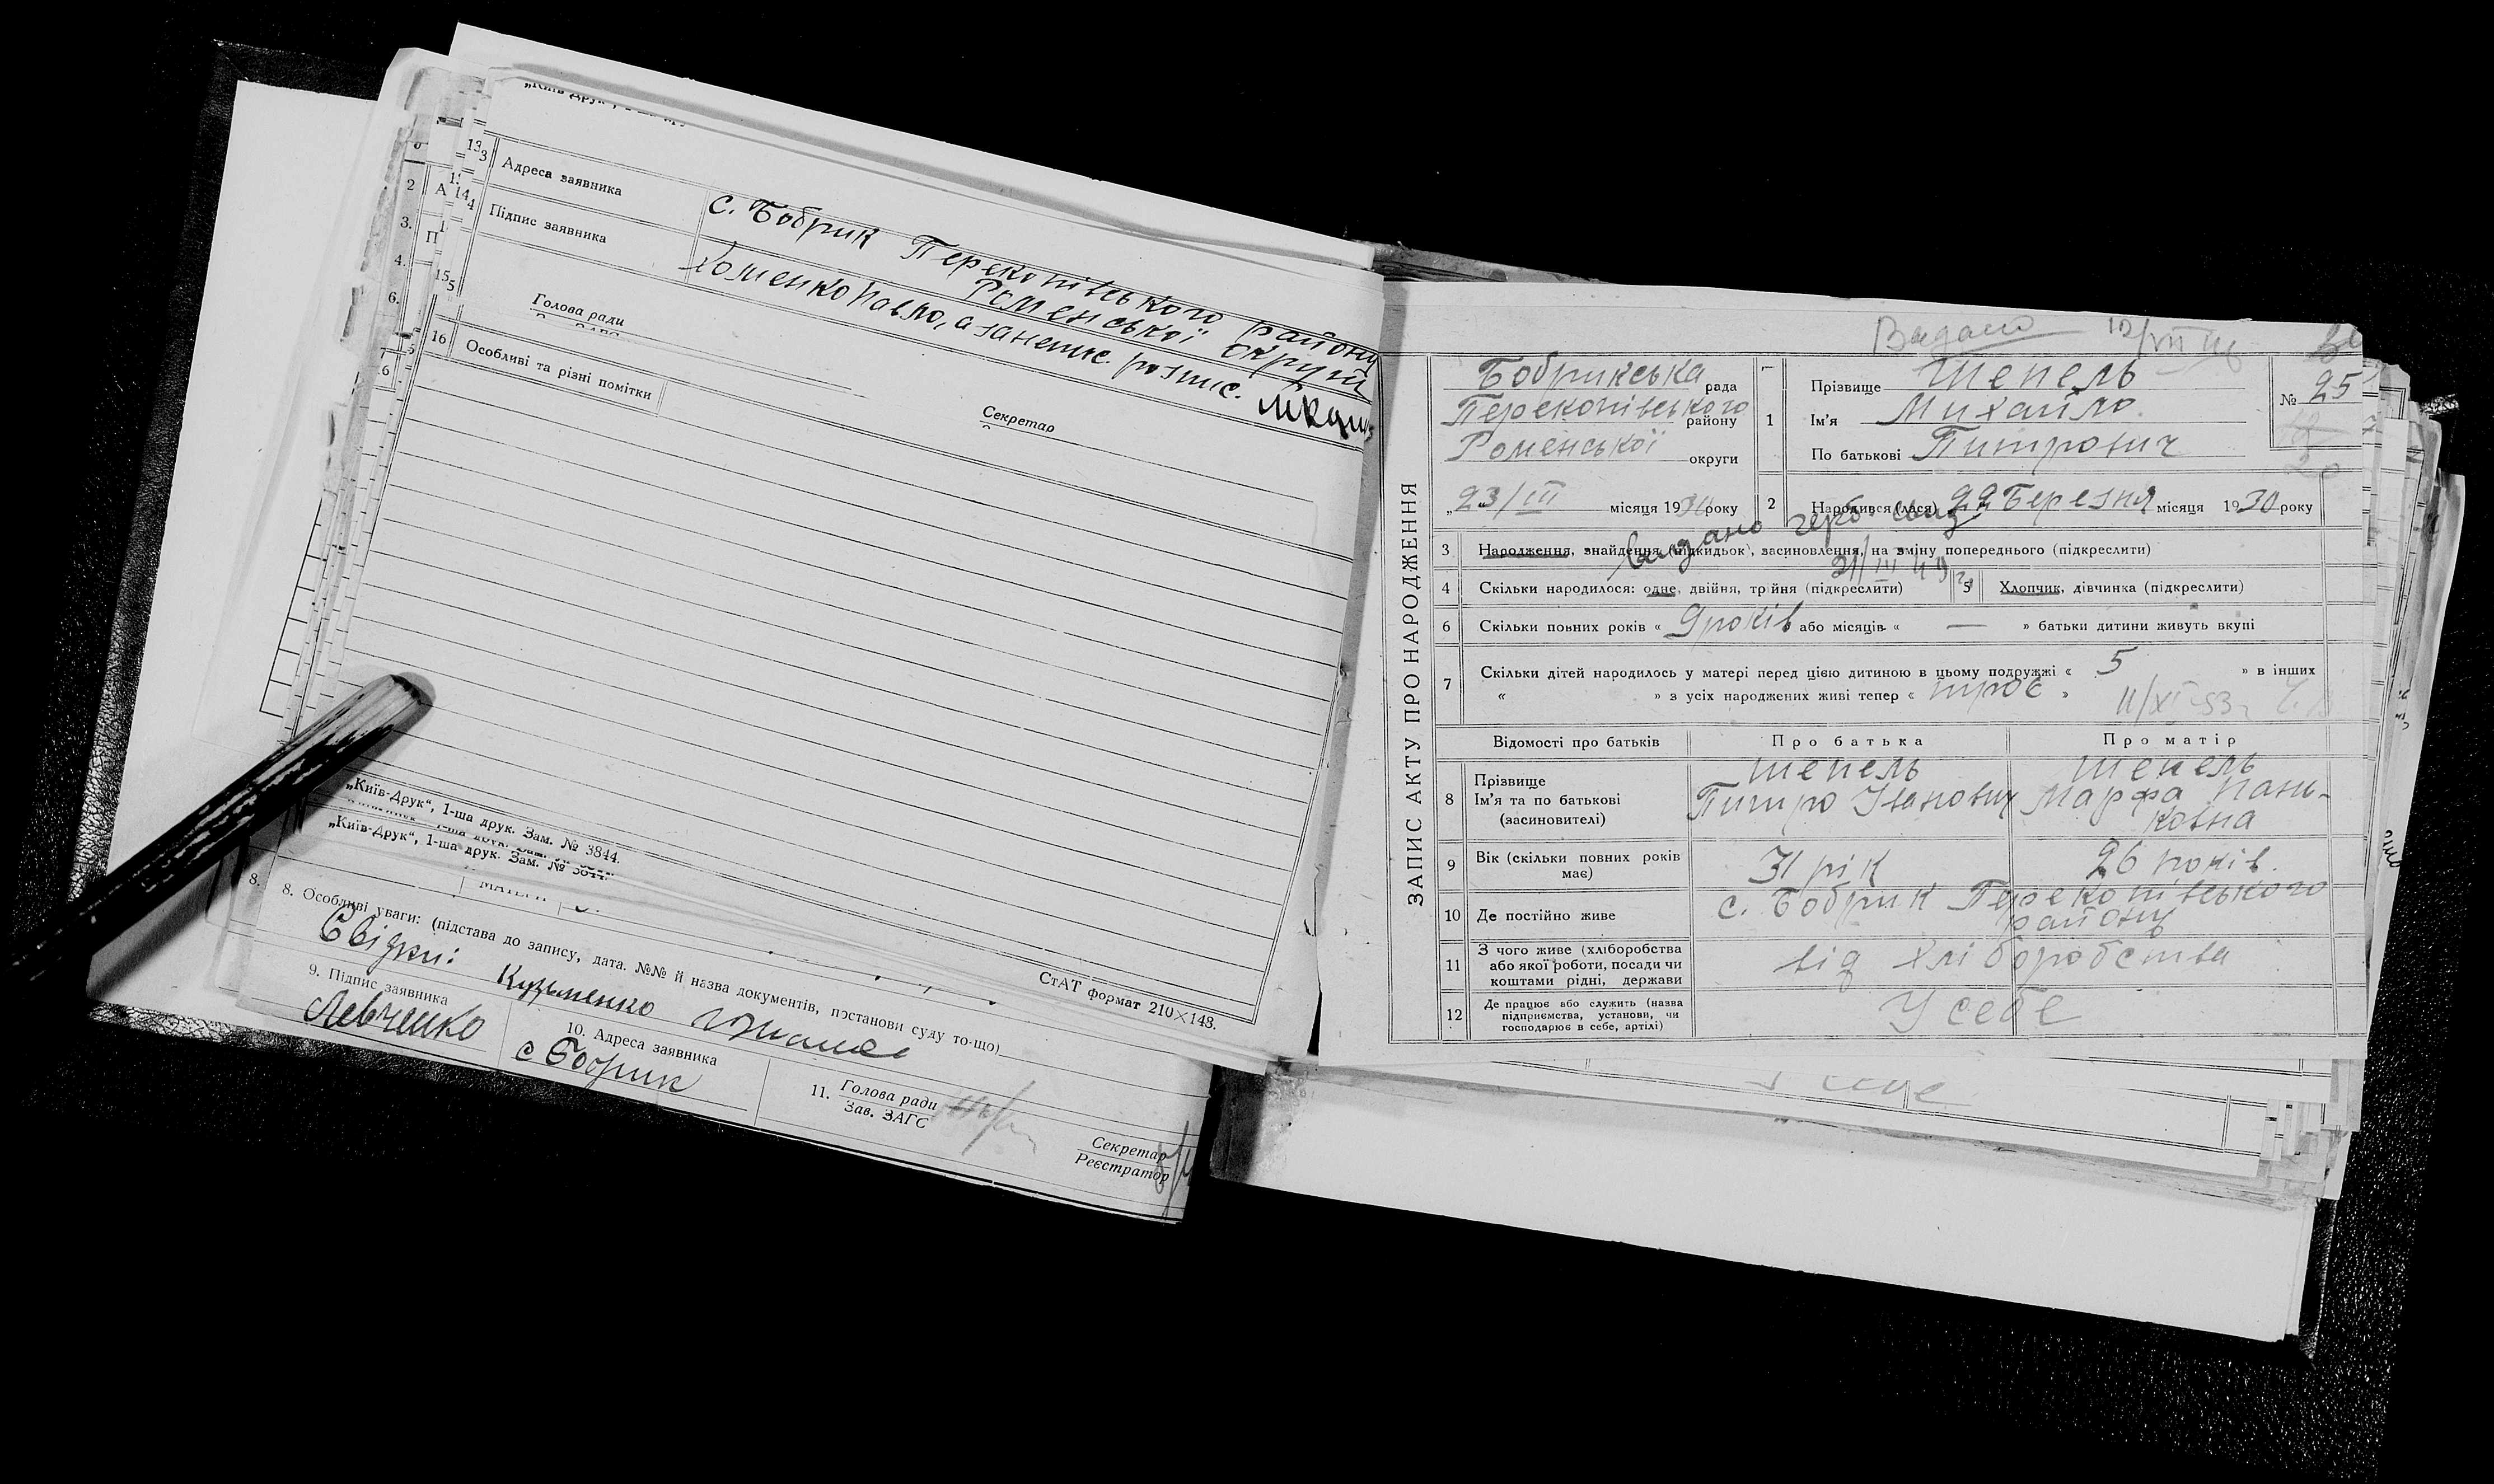 13
Адреса заявника
с. Бобрик Перекопівського району
Роменської округи
Підпис заявника
Хоменко Павло, а за неписм. розпис.
Голова ради
Секретар
16 Особливі та різні помітки
„Київ-Друк“, 1-ша друк. Зам. № 3844.
„Київ-Друк“, 1-ша друк. Зам. №
СтАТ формат 210×148.
8. Особливі уваги: (підстава до запису, дата. №№ й назва документів, постанови суду то-що)
Свідки: Кузьменко
9. Підпис заявника
Левченко
10. Адреса заявника
с Бобрик
11. Голова ради
Зав. ЗАГС
Секретар
Реєстратор
Видано 12/VII
ЗАПИС АКТУ ПРО НАРОДЖЕННЯ
Бобрикська рада
Перекопівського району
Роменської округи
„23/III місяця 1930 року
1 Прізвище Шепель
Ім'я Михайло
По батькові Питрович
№ 25
2 Народився (лася) 22 Березня місяця 1930 року
видано герб. свид
21/III 49
3 Народження, знайдення (підкидьок), засиновлення, на зміну попереднього (підкреслити)
4 Скільки народилося: одне, двійня, трійня (підкреслити)
5 Хлопчик, дівчинка (підкреслити)
6 Скільки повних років « 9 років або місяців « — » батьки дитини живуть вкупі
7 Скільки дітей народилось у матері перед цією дитиною в цьому подружжі « 5 » в інших
« » з усіх народжених живі тепер « троє »
11/XI-53
Відомості про батьків Про батька Про матір
8 Прізвище Ім'я та по батькові (засиновителі)
Шепель Питро Іванович
Шепель Марфа Паньковна
9 Вік (скільки повних років має) 31 рік 26 років.
10 Де постійно живе с. Бобрик Перекопівського району
11 З чого живе (хліборобства або якої роботи, посади чи коштами рідні, держави від хліборобства
12 Де працює або служить (назва підприємства, установи, чи господарює в себе, артілі) У себе